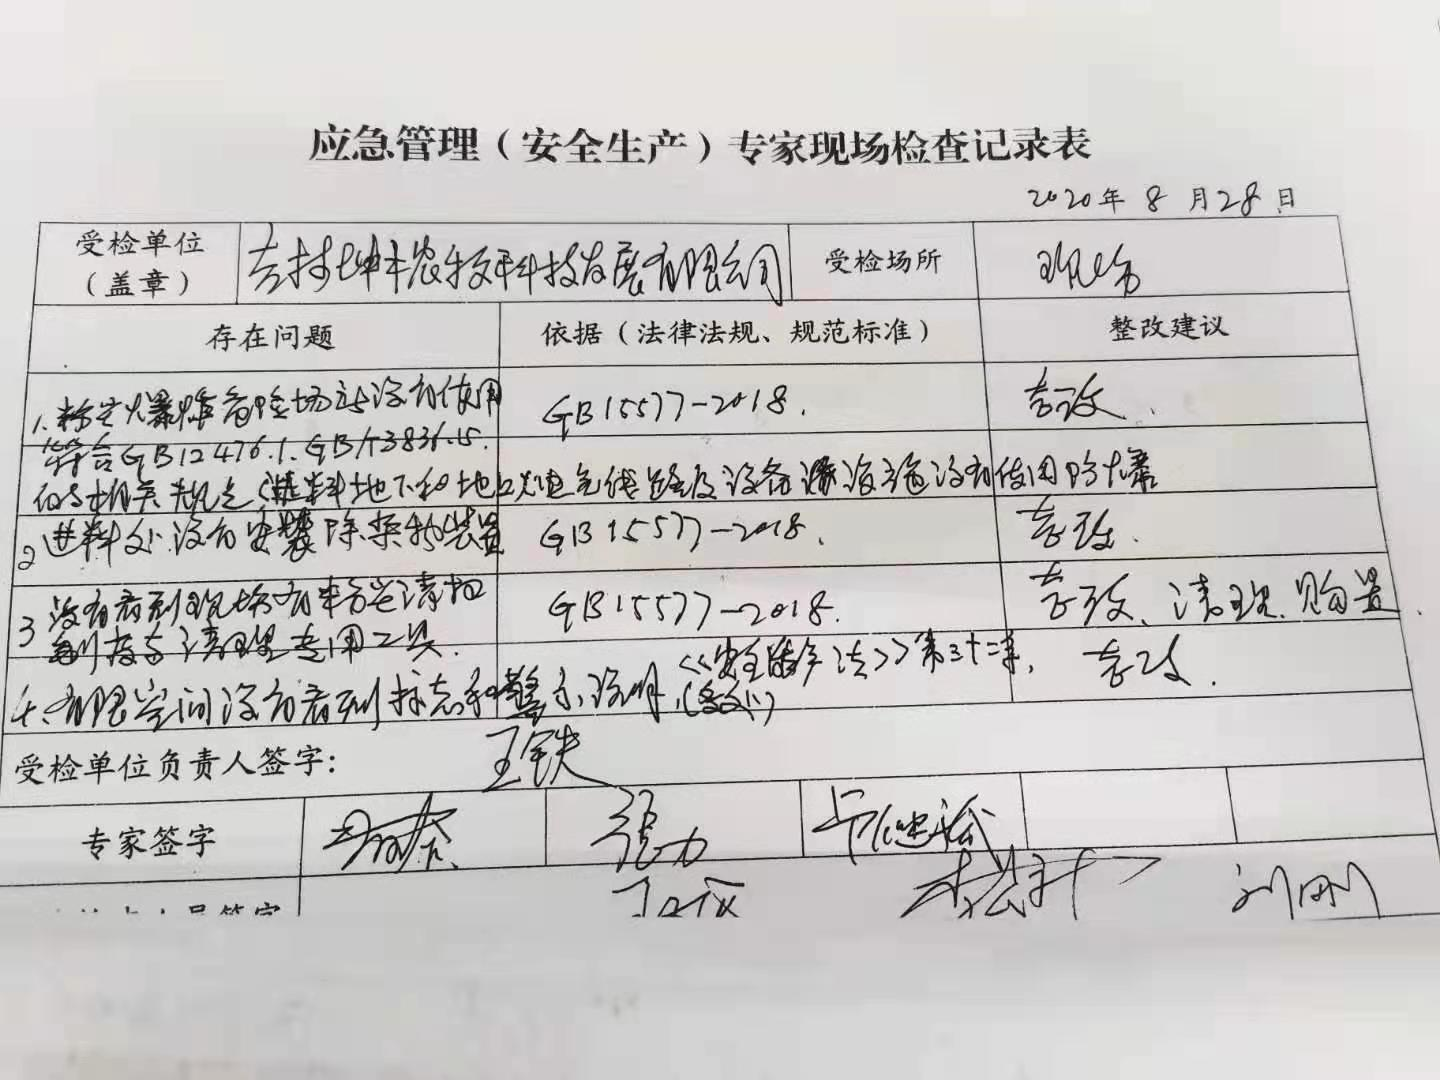 应急管理（安全生产）专家现场检查记录表
2020年 8 月28日
受检单位（盖章）
吉林坤丰农牧科技发展有限公司
受检场所
现场
存在问题
依据（法律法规、规范标准）
整改建议
1.粉尘爆炸危险场所没有使用
GB15577-2018.
整改.
符合GB12476.1.GB/T3836.15.
的相关规定（进料地下和地上 电气线路及设备 设施 没有使用防爆
2 进料处没有安装除杂物装置
GB15577-2018.
整改.
3 没有看到现场有粉尘清扫
制度与清理专用工具.
GB15577-2018.
整改、清理、购置.
4、有限空间没有看到标志和警示说明.
《安全生产法》第三十二条,
整改.
受检单位负责人签字：
王铁
专家签字
张力
刘刚